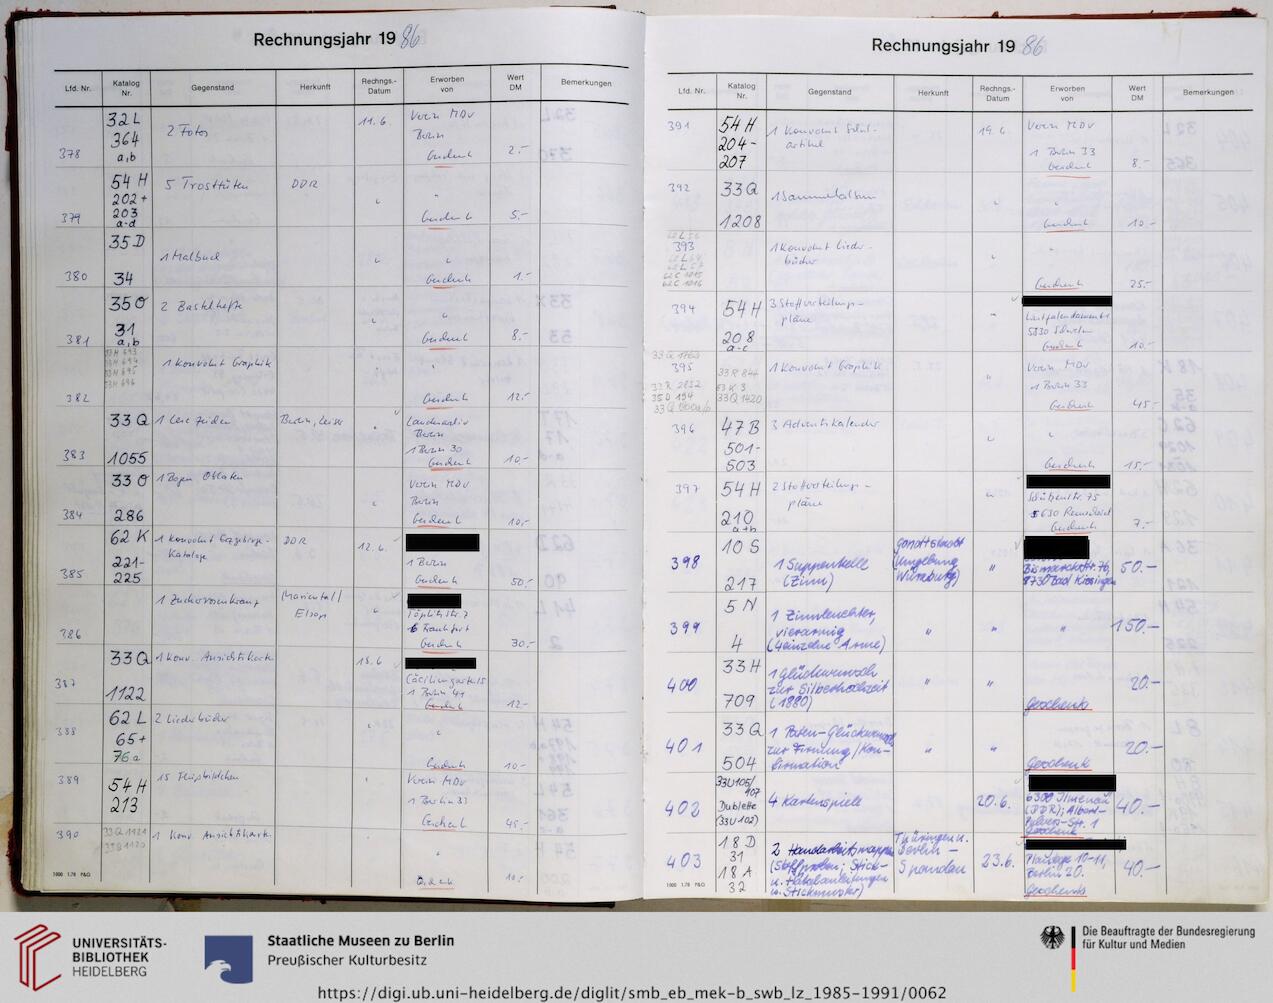 Rechnungsjahr 1986
Lfd. Nr. Katalog Nr. Gegenstand Herkunft Rechngs.-Datum Erworben von Wert DM Bemerkungen
378
32 L
364
a,b
2 Fotos
11.6.
Verein MDV
Berlin
Geschenk
2.-
379
54 H
202+
203
a-d
5 Trosttüten
DDR
"
"
Geschenk
5.-
380
35 D
34
1 Malbuch
"
"
Geschenk
1.-
381
35 O
31
a,b
2 Bastelhefte
"
"
Geschenk
8.-
382
33H 693
33H 694
33H 695
33H 696
1 Konvolut Graphik
"
Geschenk
12.-
383
33 Q
1055
Landesarchiv
Berlin
1 Berlin 30
Geschenk
10.-
384
33 O
286
1 Bogen Oblaten
"
Verein MDV
Berlin
Geschenk
10.-
385
62 K
221-
225
1 Konvolut Erzgebirge-
Kataloge
DDR
12.6.
1 Berlin
Geschenk
50.-
386
1 Zuckerrosenkranz
Mariental/
Elsass
"
6 Frankfurt
Geschenk
30.-
387
33 Q
1122
1 Konv. Ansichtskarten
1 Berlin 41
Geschenk
12.-
388
62 L
65+
76a
2 Liederbücher
"
"
Geschenk
10.-
389
54 H
213
15 Fleißbildchen
"
Verein MDV
1 Berlin 33
Geschenk
45.-
390
33 Q 1121
33 Q 1120
1 Konv. Ansichtskarten
"
10.-
1000 1.78 P&G
Rechnungsjahr 1986
Lfd. Nr. Katalog Nr. Gegenstand Herkunft Rechngs.-Datum Erworben von Wert DM Bemerkungen
391
54 H
204-
207
1 Konvolut Schul-
artikel
19.6.
Verein MDV
1 Berlin 33
Geschenk
8.-
392
33 Q
1208
1 Sammelalbum
"
"
Geschenk
10.-
393
62 C 1015
62 C 1016
1 Konvolut Lieder-
bücher
"
"
Geschenk
25.-
394
54 H
208
a-c
3 Stoffverteilungs-
pläne
"
5830 Schwelm
Geschenk
10.-
33 Q 1763
395
33 R 844
33 R 2852
53 K 3
35 D 194
33 Q 1420
1 Konvolut Graphik
"
Verein MDV
1 Berlin 33
Geschenk
45.-
396
47 B
501-
503
3 Adventskalender
"
"
Geschenk
15.-
397
54 H
210
a+b
2 Stoffverteilungs-
pläne
"
Schützenstr. 75
5630 Remscheid
Geschenk
7.-
398
10 S
217
1 Suppenkelle
(Zinn)
Ganottstadt
(Umgebung
Würzburg)
"
Bismarckstr. 76,
8730 Bad Kissingen
50.-
399
5 N
4
1 Zinnleuchter,
vierarmig
(4 einzelne Arme)
"
"
"
150.-
400
33 H
709
1 Glückwunsch
zur Silberhochzeit
(1880)
"
"
Geschenk
20.-
401
33 Q
504
1 Paten-Glückwunsch
zur Firmung/Kon-
firmation
"
"
Geschenk
20.-
402
33U105/
107
Dublette
(33U102)
4 Kartenspiele
20.6.
6300 Ilmenau
(DDR); Albert-
Str. 1
Geschenk
40.-
403
18 D
31
18 A
32
2 Handarbeitsmappen
(Stoffproben, Stick-
u. Häkelanleitungen
u. Stickmuster)
Thüringen u.
Berlin-
Spandau
23.6.
10-11,
Berlin 20.
Geschenk
40.-
1000 1.78 P&G
UNIVERSITÄTS-
BIBLIOTHEK
HEIDELBERG
Staatliche Museen zu Berlin
Preußischer Kulturbesitz
Die Beauftragte der Bundesregierung
für Kultur und Medien
https://digi.ub.uni-heidelberg.de/diglit/smb_eb_mek-b_swb_lz_1985-1991/0062